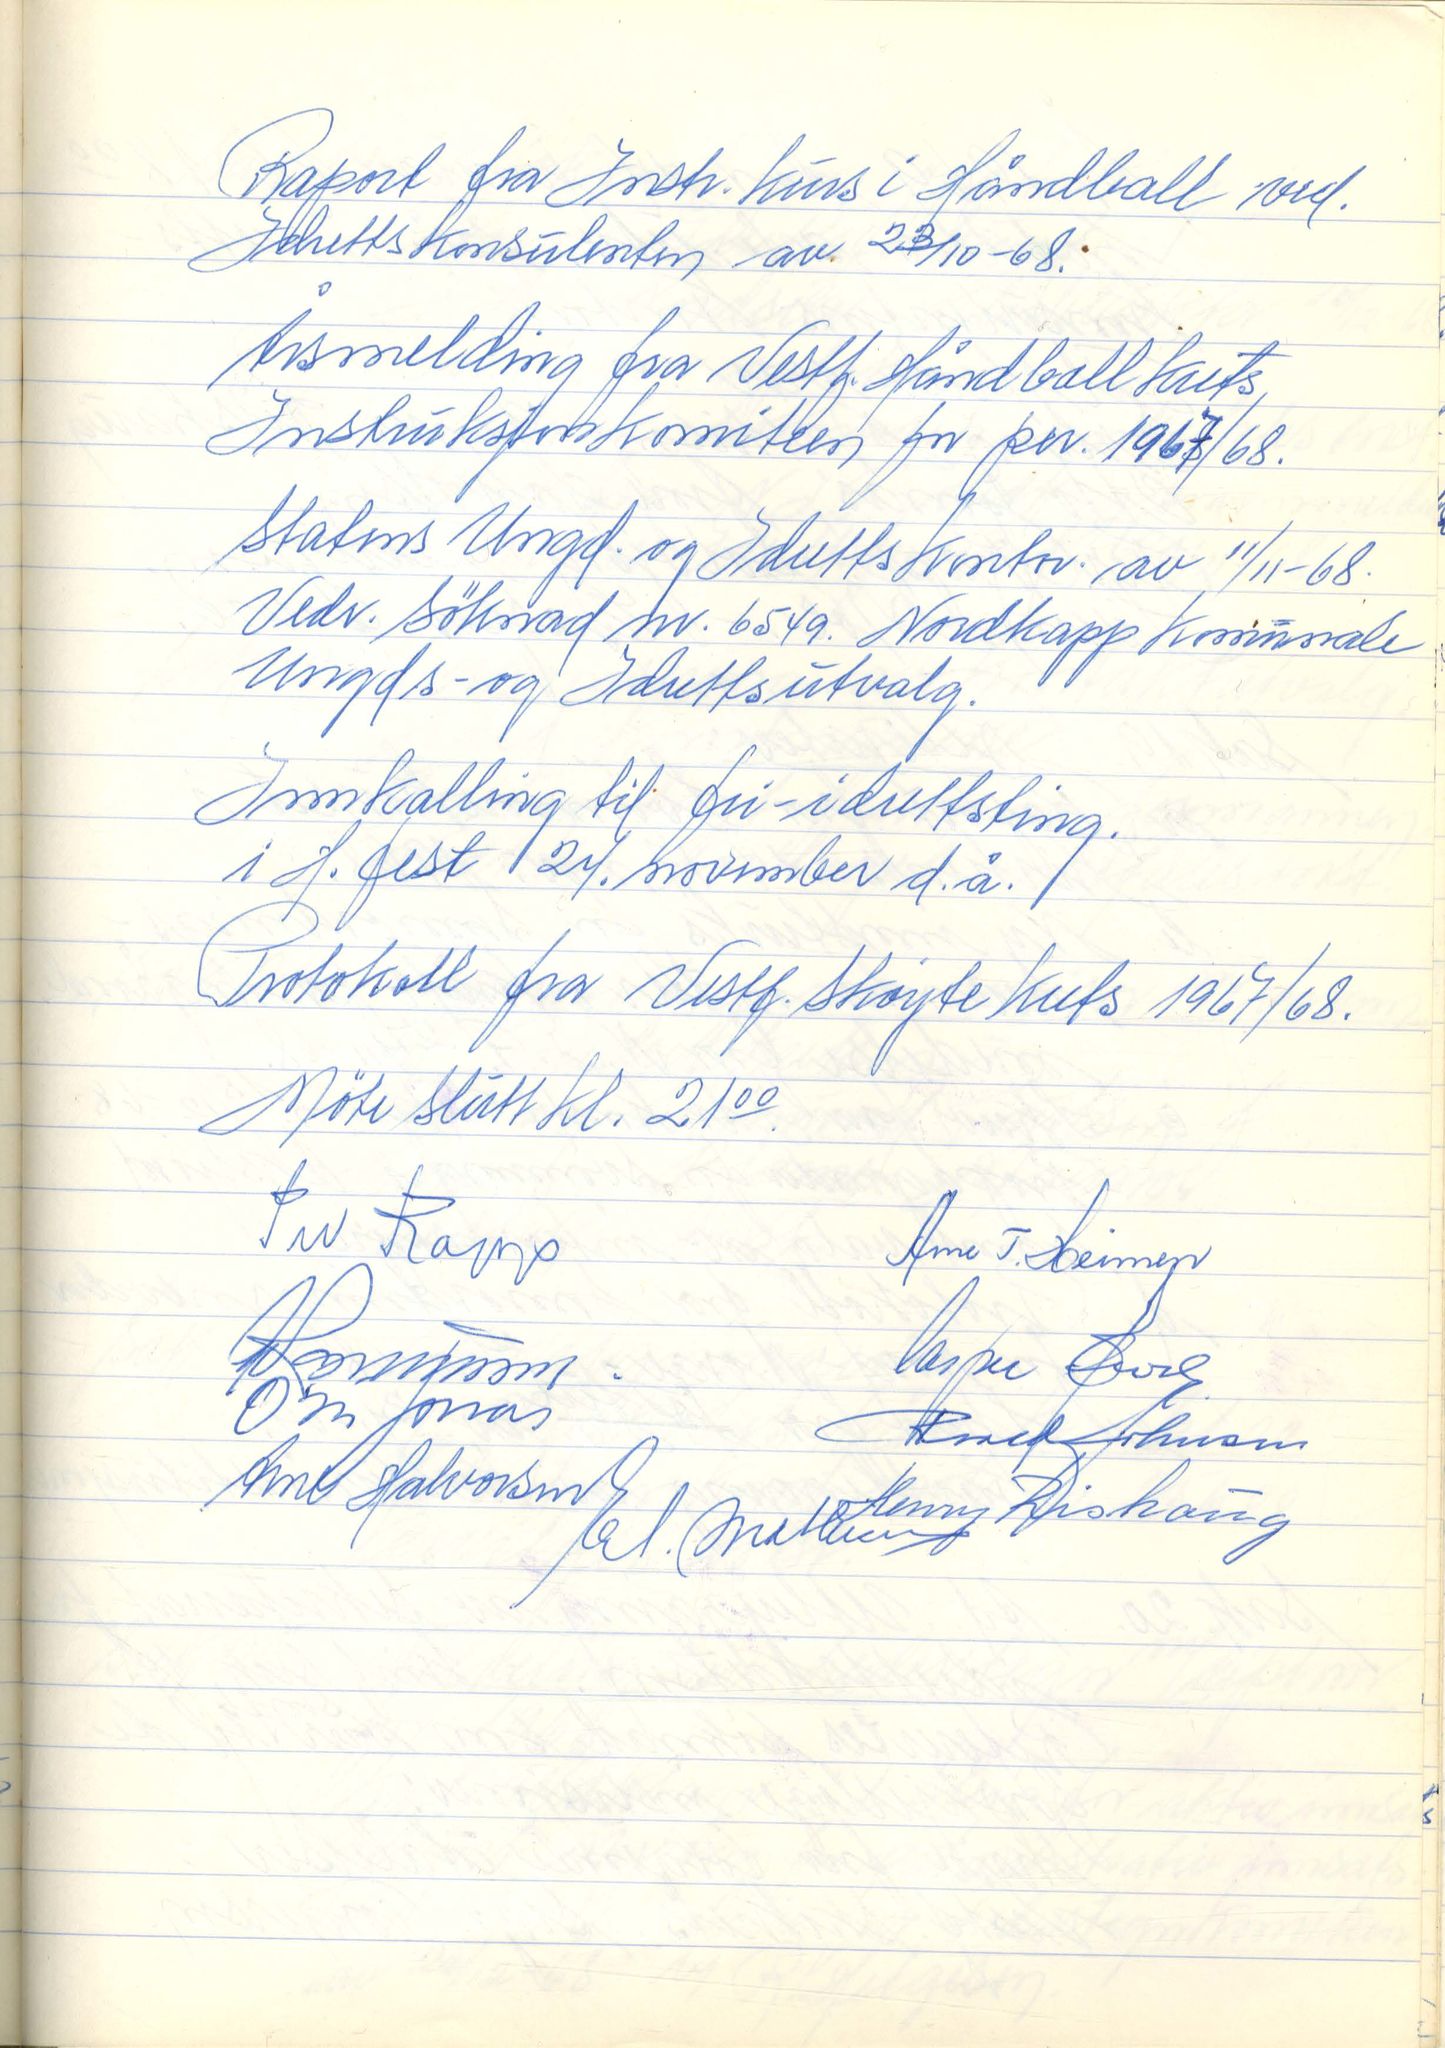 Raport fra Instr. kurs i Håndball ved.
Idrettskonsulenten av. 23/10-68.
Årsmelding fra Vestf. Håndballkrets,
Instruksjonskomiteen for per. 1967/68.
Statens Ungd. og Idrettskontor. av 11/11-68.
Vedr. Söknad nr. 6549. Nordkapp Kommunale
Ungds- og Idrettsutvalg.
Innkalling til fri-idrettsting.
i H.fest 24. november d.å.
Protokoll fra Vestf. Skøytekrets 1967/68.
Möte slutt kl. 21⁰⁰.
Per Rapp
Arne T. Heimen
Arne Halvorsen
Johnsen
Henry Rishaug